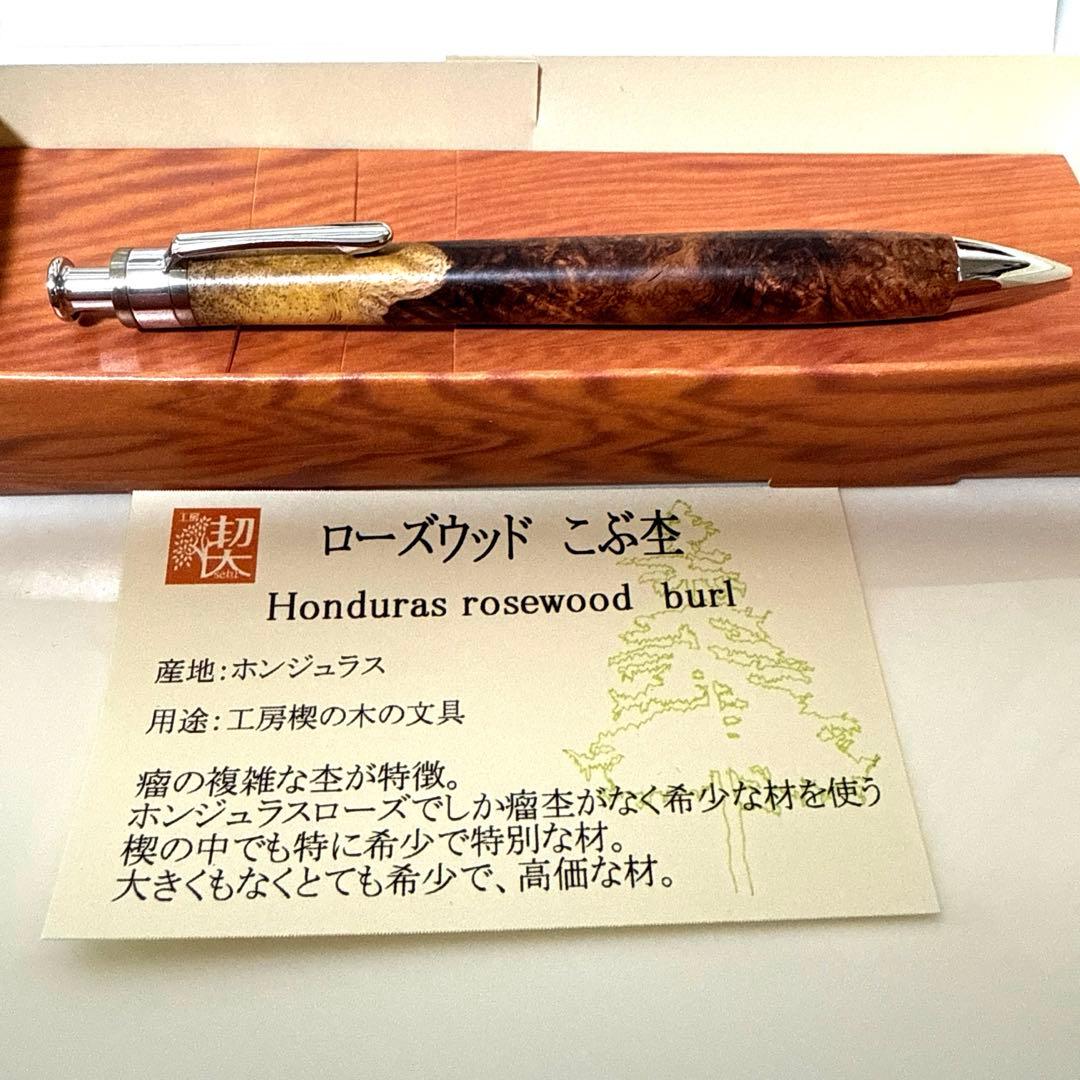 工房
契
setu
ローズウッド こぶ杢
Honduras rosewood burl
産地:ホンジュラス
用途:工房楔の木の文具
瘤の複雑な杢が特徴。
ホンジュラスローズでしか瘤杢がなく希少な材を使う
楔の中でも特に希少で特別な材。
大きくもなくとても希少で、高価な材。